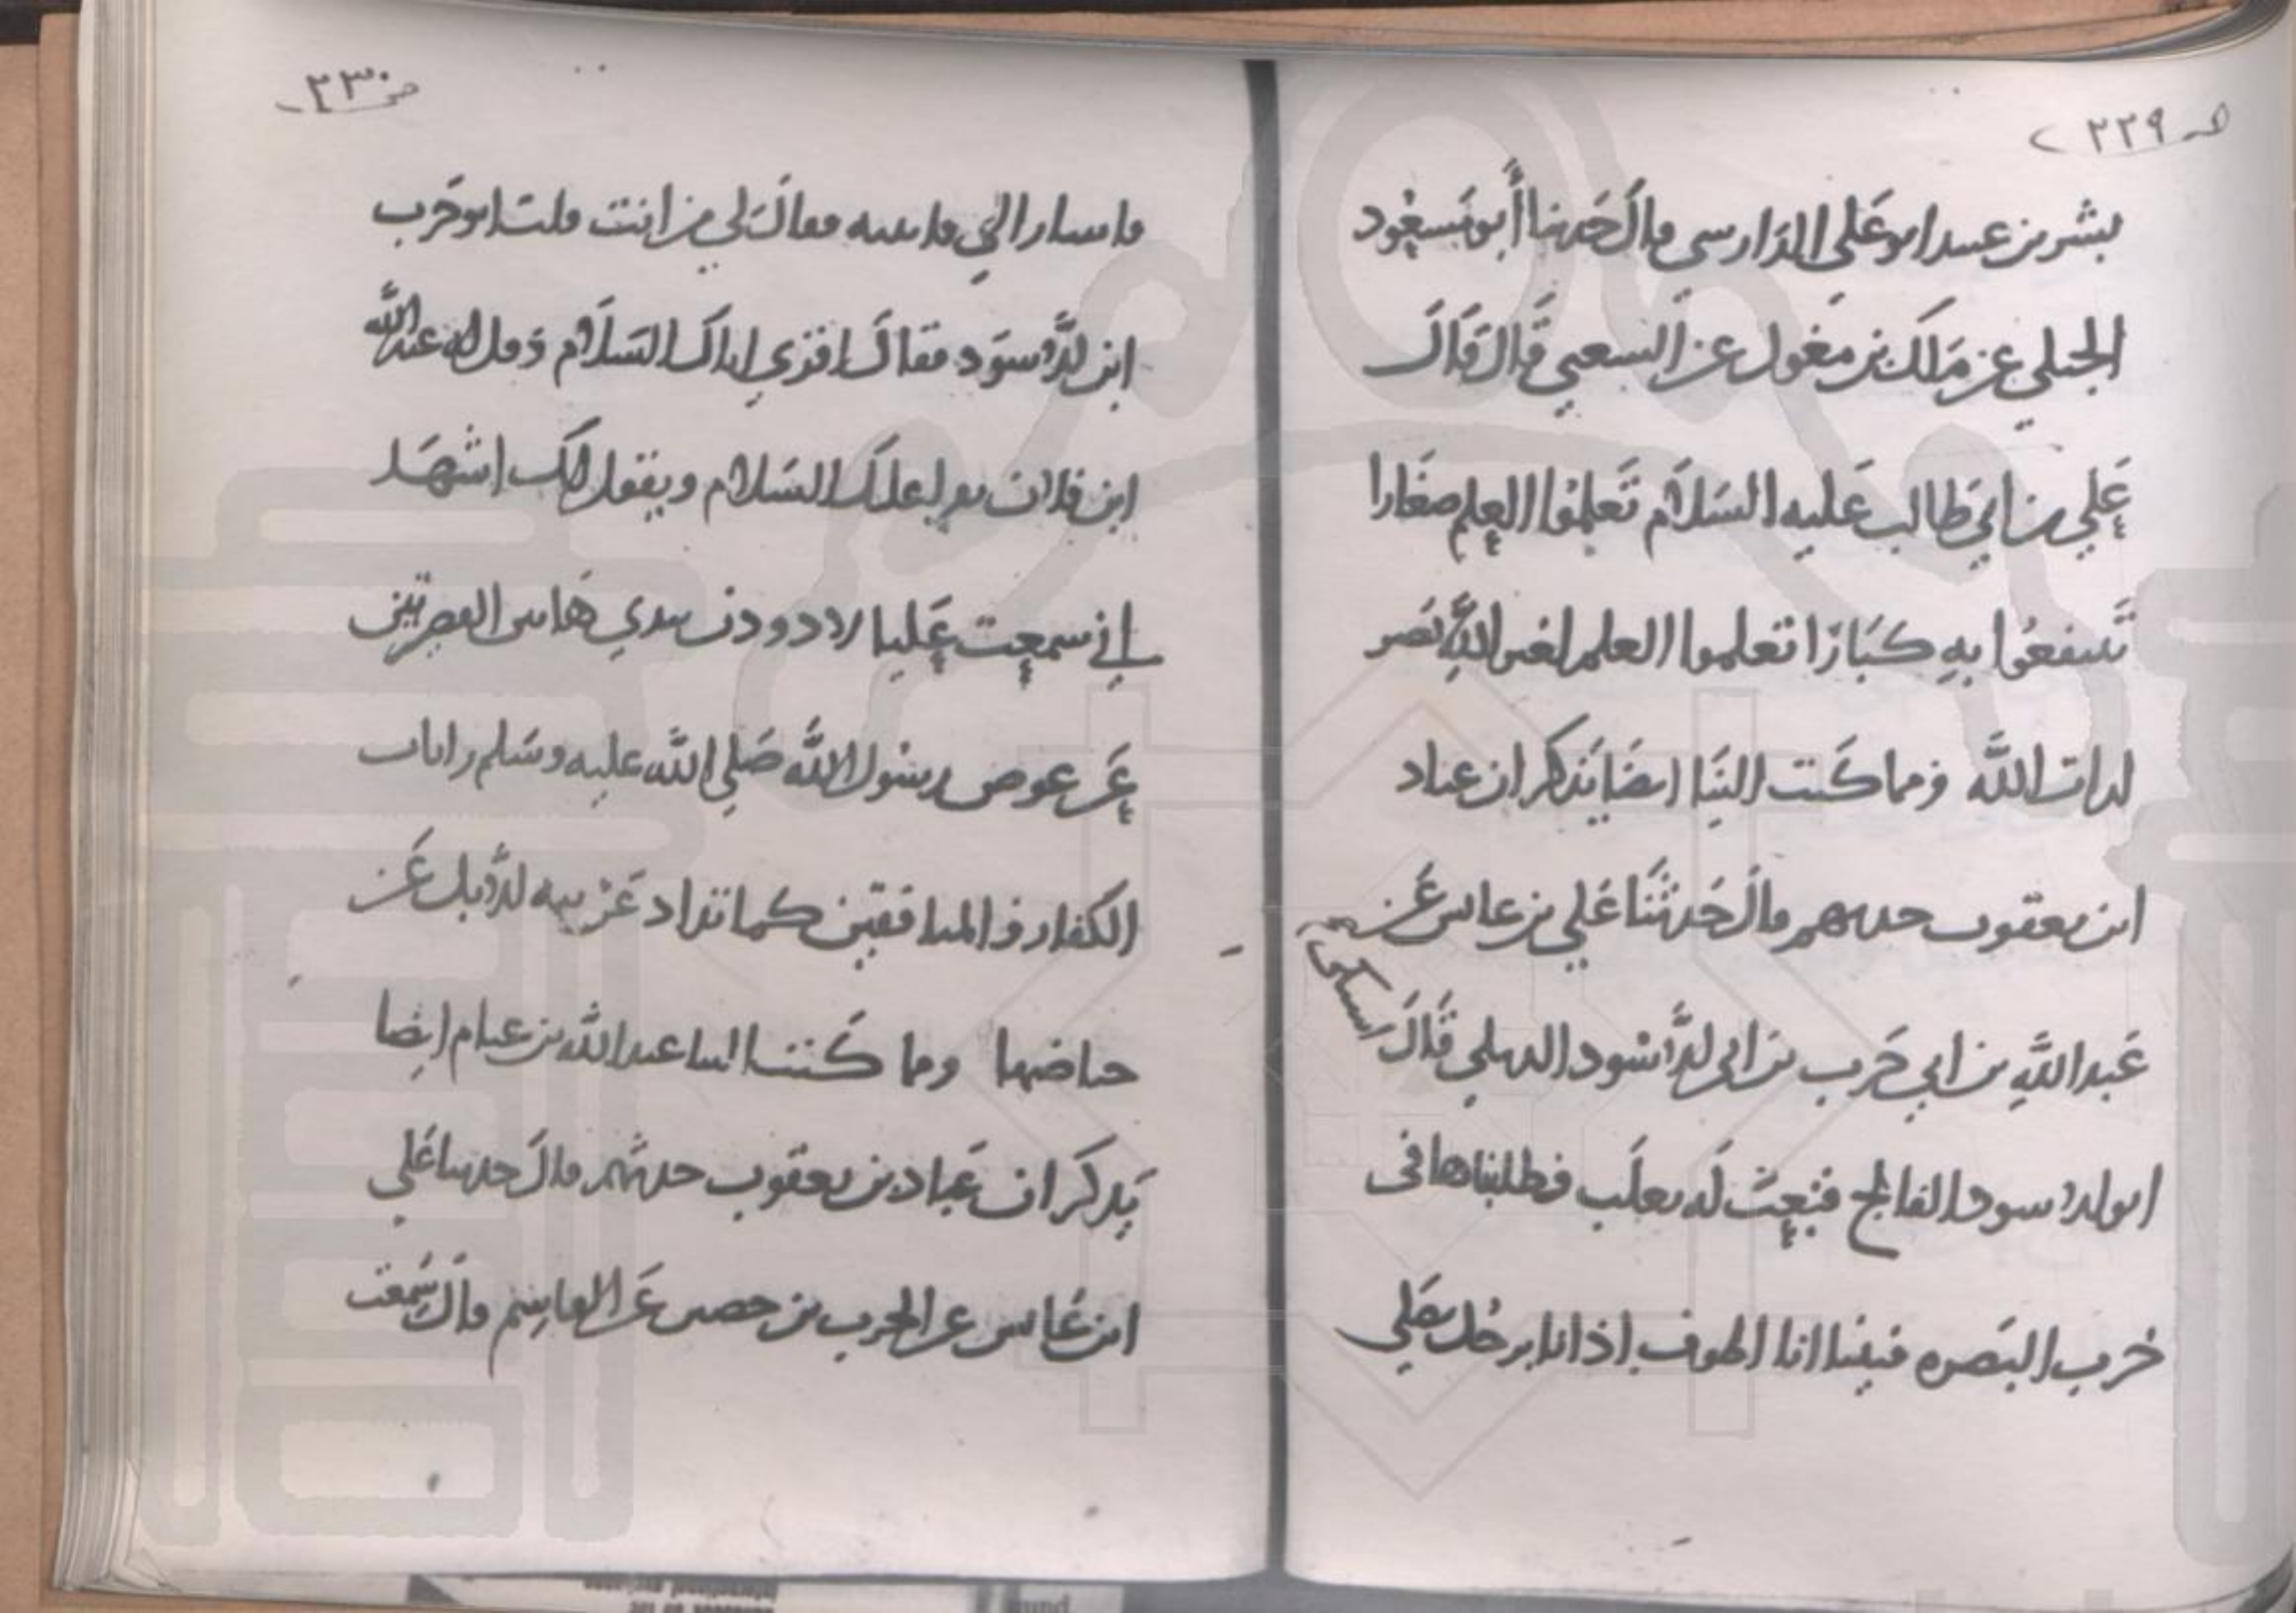 صـ ٢٢٩
بشر بن عبيد ابو علي الدارسي قال حدثنا أبو مسعود
الجبلي عن مالك بن مغول عن الشعبي قال قال
علي بن ابي طالب عليه السلام تعلموا العلم صغارا
تنتفعوا به كبارا تعلموا العلم لغير الله يصر
لذات الله ومما كتب الينا ايضا يذكر ان عباد
ابن يعقوب حدثهم قال حدثنا علي بن عابس عن
عبد الله بن ابي حرب بن ابي الاسود الديلي قال اشتكى
ابو الاسود الفالج فنعت له ثعلب فطلبناها في
خرب البصره فبينا انا اطوف اذ انا برجل يصلي
صـ ٢٣٠
فاشار الي فاتيته فقال لي من انت قلت ابو حرب
ابن الاسود فقال اقري اباك السلام وقل له عبد الله
ابن فلان يقرا عليك السلام ويقول لك اشهد
اني سمعت عليا لاذودن بيدي هاتين القصيرتين
عن حوض رسول الله صلي الله عليه وسلم رايات
الكفار والمنافقين كما تذاد غريبه الابل عن
حياضها ومما كتب الينا عبد الله بن غنام ايضا
يذكر ان عباد بن يعقوب حدثهم قال حدثنا علي
ابن عابس عن الحرث بن حصين عن القاسم قال سمعت